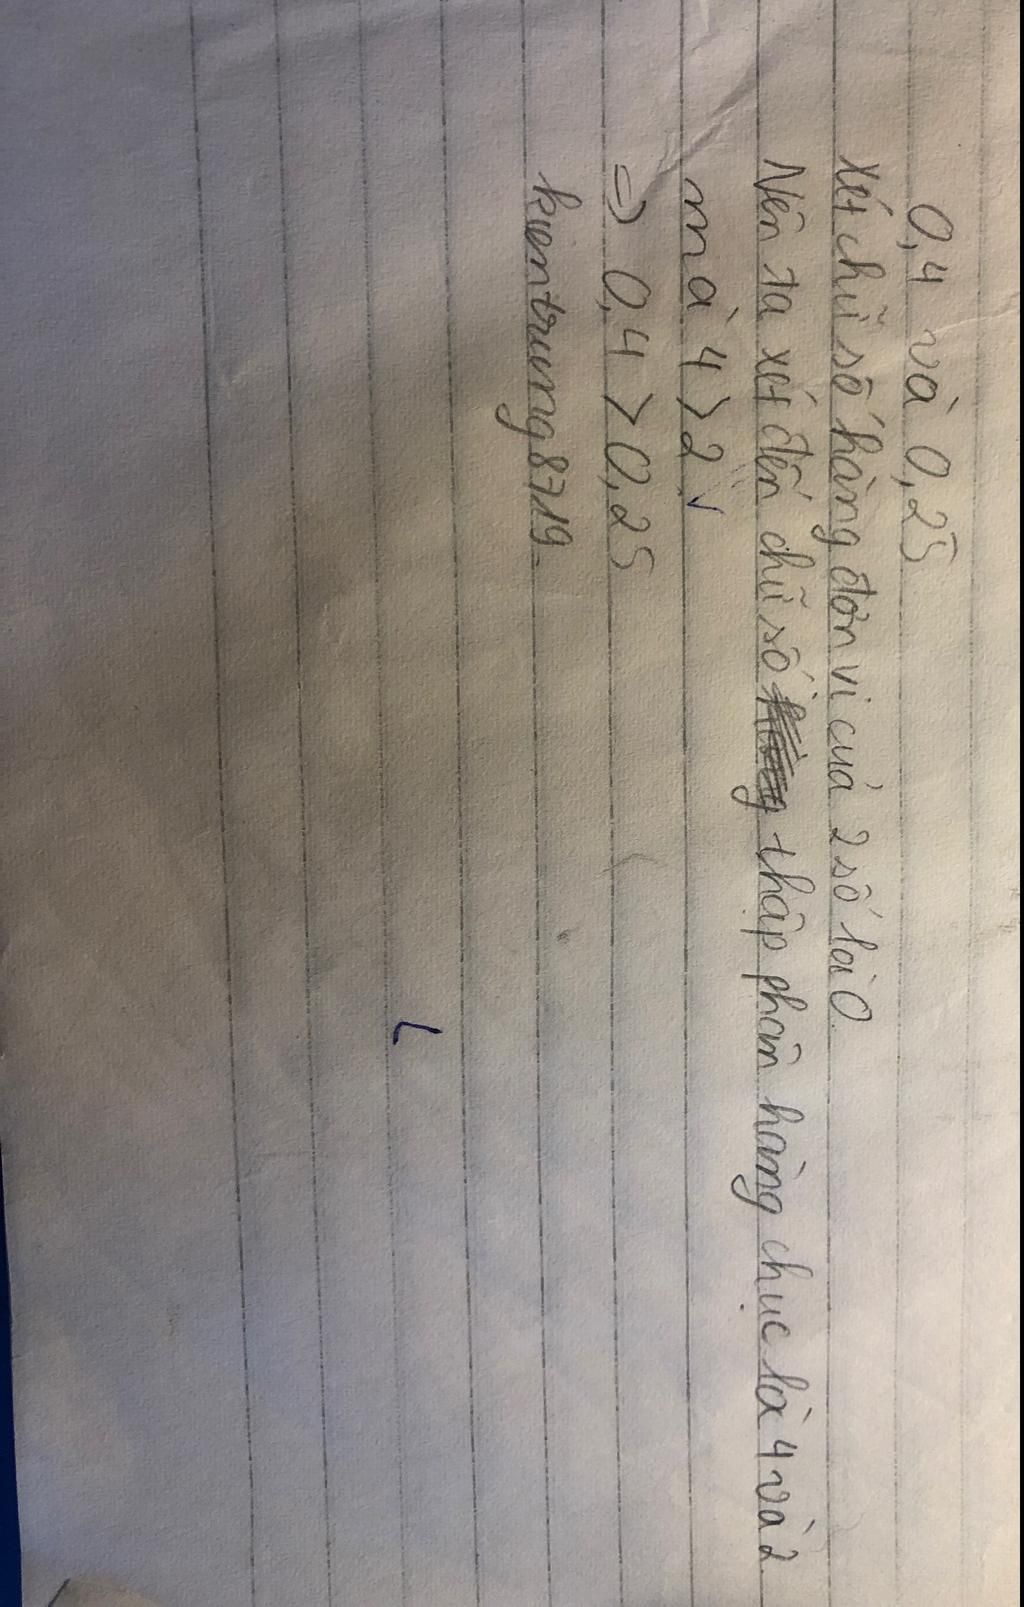 0,4 và 0,25
xét chữ số hàng đơn vi của 2 số là 0
Nên ta xét đến chữ số thập phân hàng chục là 4 và 2
mà 4 > 2
=> 0,4 > 0,25
kientrung8719